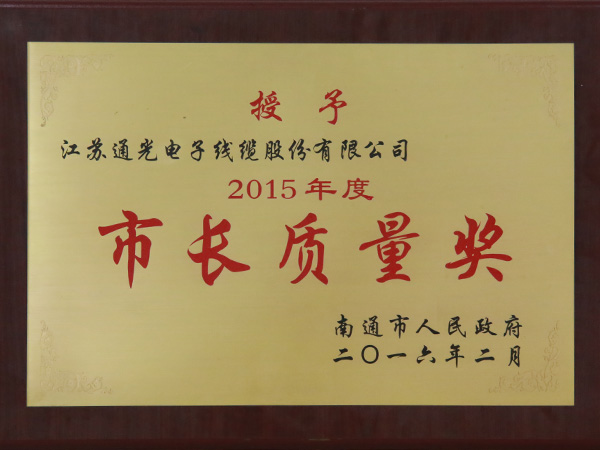 授予
江苏通光电子线缆股份有限公司
2015年度
市长质量奖
南通市人民政府
二〇一六年二月